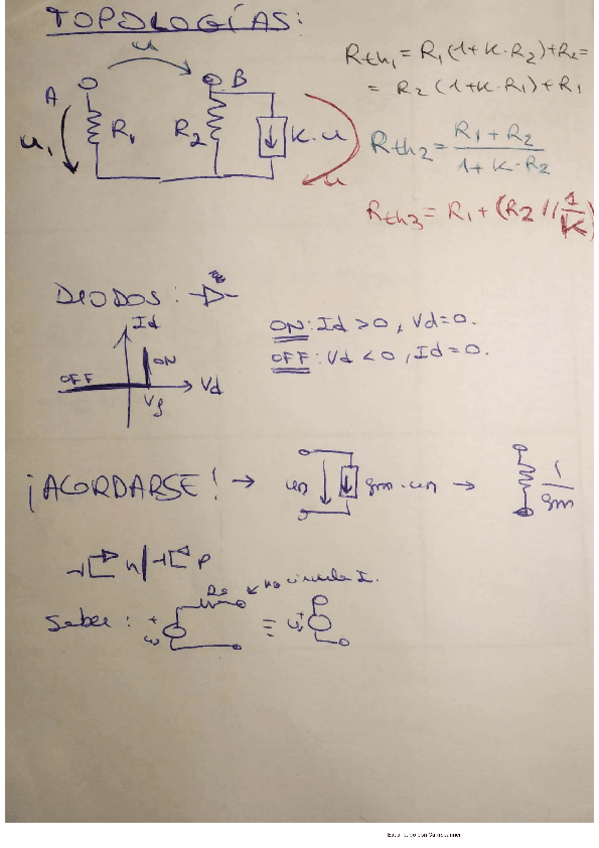 TOPOLOGÍAS:
u
A
B
u₁
R₁
R₂
K·u
u
Rth₁ = R₁(1+K·R₂)+R₂ =
= R₂(1+K·R₁)+R₁
Rth₂ = R₁+R₂ / 1+K·R₂
Rth₃ = R₁+(R₂//1/K)
DIODOS:
Id
ON
OFF
Vd
Vγ
ON: Id>0, Vd=0.
OFF: Vd<0, Id=0.
¡ACORDARSE! → un gm·un → 1/gm
n | P
Saber: + = +
no circula I.